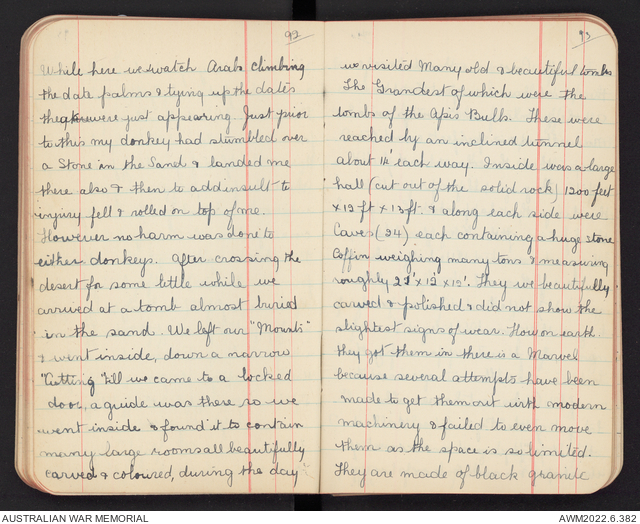 92
While here we watch Arabs climbing
the date palms & tying up the dates
that were just appearing. Just prior
to this my donkey had stumbled over
a Stone in the Sand & landed me
there also & then to add insult to
injury fell & rolled on top of me.
However no harm was done to
either donkeys. After crossing the
desert for some little while we
arrived at a tomb almost buried
in the sand. We left our "Mounts"
& went inside, down a narrow
"Cutting" till we came to a locked
door, a guide was there so we
went inside & found it to contain
many large rooms all beautifully
carved & coloured, during the day
93
we visited Many old & beautiful tombs
The Grandest of which were the
tombs of the Apis Bulls. These were
reached by an inclined tunnel
about 1/4 each way. Inside was a large
hall (cut out of the solid rock) 1200 feet
x 12 ft x 13 ft. & along each side were
Caves (24) each containing a huge stone
Coffin weighing many tons & measuring
roughly x 12 x 12'. They we beautifully
carved & polished & did not show the
slightest signs of wear. How on earth
they got them in there is a Marvel
because several attempts have been
made to get them out with modern
machinery & failed to even move
them as the space is so limited.
They are made of black granite
AUSTRALIAN WAR MEMORIAL
AWM2022.6.382